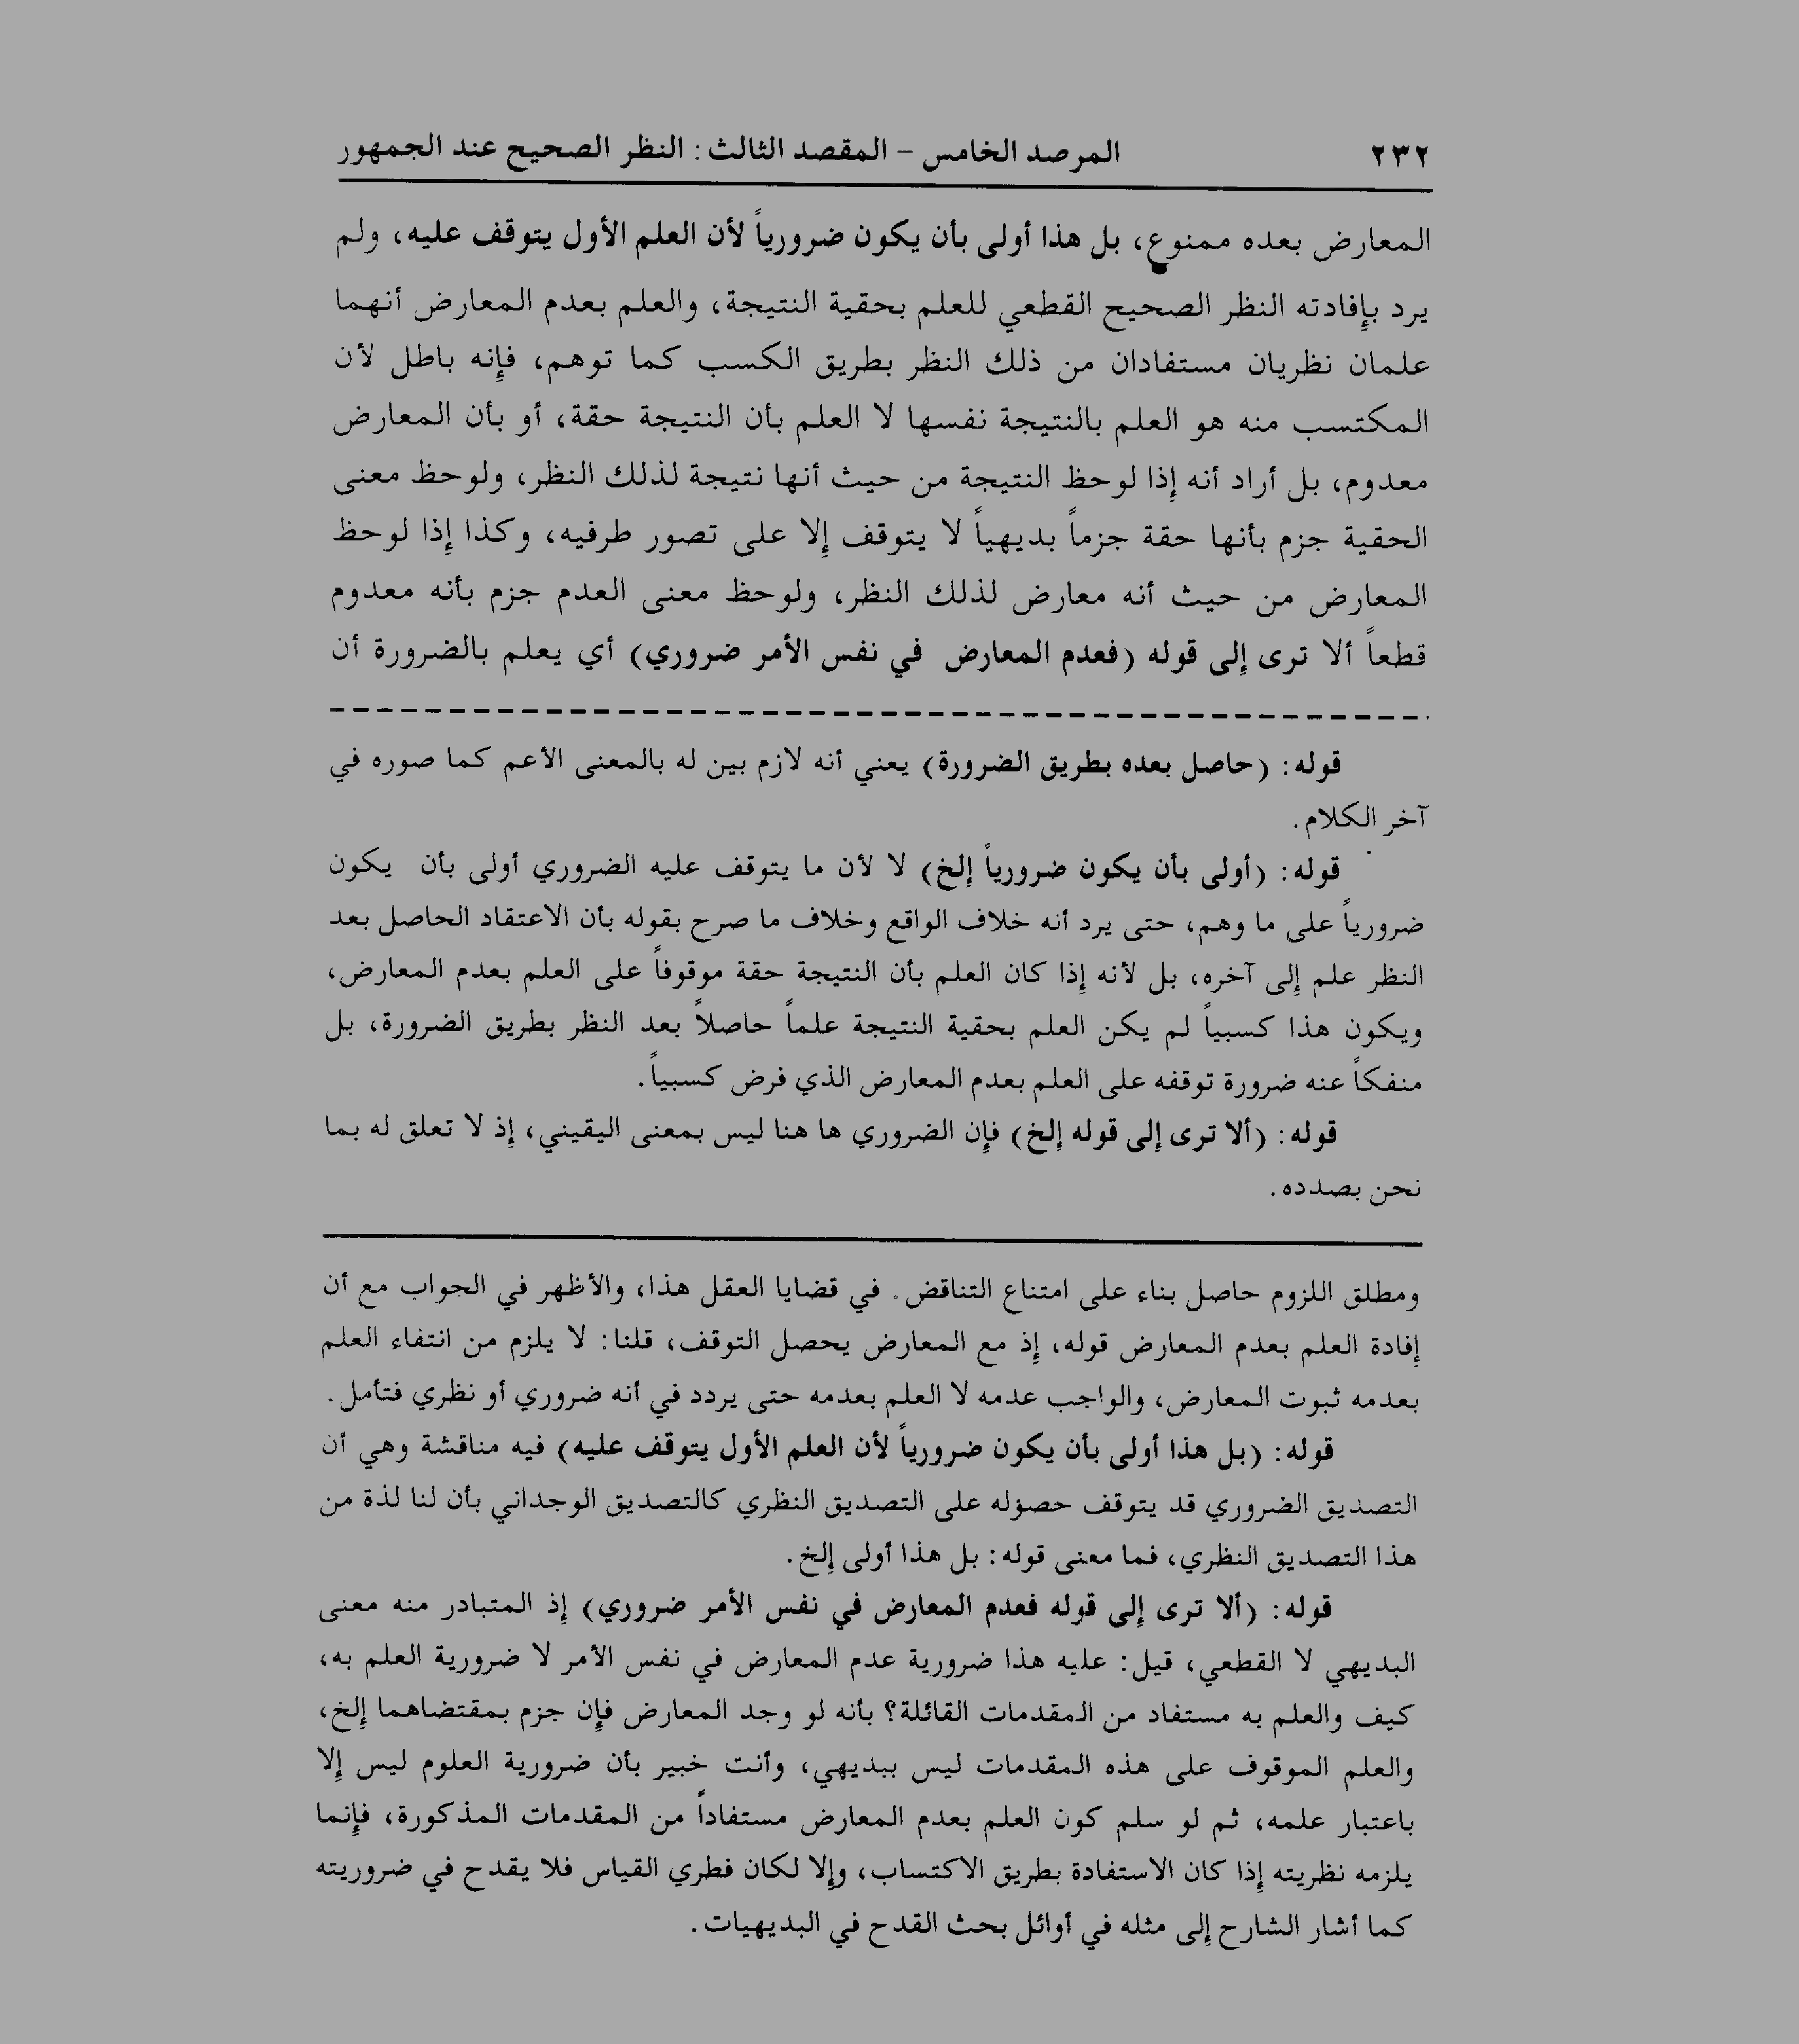 ٢٣٢ المرصد الخامس – المقصد الثالث: النظر الصحيح عند الجمهور
المعارض بعده ممنوع، بل هذا أولى بأن يكون ضرورياً لأن العلم الأول يتوقف عليه، ولم
يرد بإفادته النظر الصحيح القطعي للعلم بحقية النتيجة، والعلم بعدم المعارض أنهما
علمان نظريان مستفادان من ذلك النظر بطريق الكسب كما توهم، فإنه باطل لأن
المكتسب منه هو العلم بالنتيجة نفسها لا العلم بأن النتيجة حقة، أو بأن المعارض
معدوم، بل أراد أنه إذا لوحظ النتيجة من حيث أنها نتيجة لذلك النظر، ولوحظ معنى
الحقية جزم بأنها حقة جزماً بديهياً لا يتوقف إلا على تصور طرفيه، وكذا إذا لوحظ
المعارض من حيث أنه معارض لذلك النظر، ولوحظ معنى العدم جزم بأنه معدوم
قطعاً ألا ترى إلى قوله (فعدم المعارض في نفس الأمر ضروري) أي يعلم بالضرورة أن
قوله: (حاصل بعده بطريق الضرورة) يعني أنه لازم بين له بالمعنى الأعم كما صوره في
آخر الكلام.
قوله: (أولى بأن يكون ضرورياً إلخ) لا لأن ما يتوقف عليه الضروري أولى بأن يكون
ضرورياً على ما وهم، حتى يرد أنه خلاف الواقع وخلاف ما صرح بقوله بأن الاعتقاد الحاصل بعد
النظر علم إلى آخره، بل لأنه إذا كان العلم بأن النتيجة حقة موقوفاً على العلم بعدم المعارض،
ويكون هذا كسبياً لم يكن العلم بحقية النتيجة علماً حاصلاً بعد النظر بطريق الضرورة، بل
منفكاً عنه ضرورة توقفه على العلم بعدم المعارض الذي فرض كسبياً.
قوله: (ألا ترى إلى قوله إلخ) فإن الضروري ها هنا ليس بمعنى اليقيني، إذ لا تعلق له بما
نحن بصدده.
ومطلق اللزوم حاصل بناء على امتناع التناقض. في قضايا العقل هذا، والأظهر في الجواب مع أن
إفادة العلم بعدم المعارض قوله، إذ مع المعارض يحصل التوقف، قلنا: لا يلزم من انتفاء العلم
بعدمه ثبوت المعارض، والواجب عدمه لا العلم بعدمه حتى يردد في أنه ضروري أو نظري فتأمل.
قوله: (بل هذا أولى بأن يكون ضرورياً لأن العلم الأول يتوقف عليه) فيه مناقشة وهي أن
التصديق الضروري قد يتوقف حصوله على التصديق النظري كالتصديق الوجداني بأن لنا لذة من
هذا التصديق النظري، فما معنى قوله: بل هذا أولى إلخ.
قوله: (ألا ترى إلى قوله فعدم المعارض في نفس الأمر ضروري) إذ المتبادر منه معنى
البديهي لا القطعي، قيل: عليه هذا ضرورية عدم المعارض في نفس الأمر لا ضرورية العلم به،
كيف والعلم به مستفاد من المقدمات القائلة؟ بأنه لو وجد المعارض فإن جزم بمقتضاهما إلخ،
والعلم الموقوف على هذه المقدمات ليس ببديهي، وأنت خبير بأن ضرورية العلوم ليس إلا
باعتبار علمه، ثم لو سلم كون العلم بعدم المعارض مستفاداً من المقدمات المذكورة، فإنما
يلزمه نظريته إذا كان الاستفادة بطريق الاكتساب، وإلا لكان فطري القياس فلا يقدح في ضروريته
كما أشار الشارح إلى مثله في أوائل بحث القدح في البديهيات.